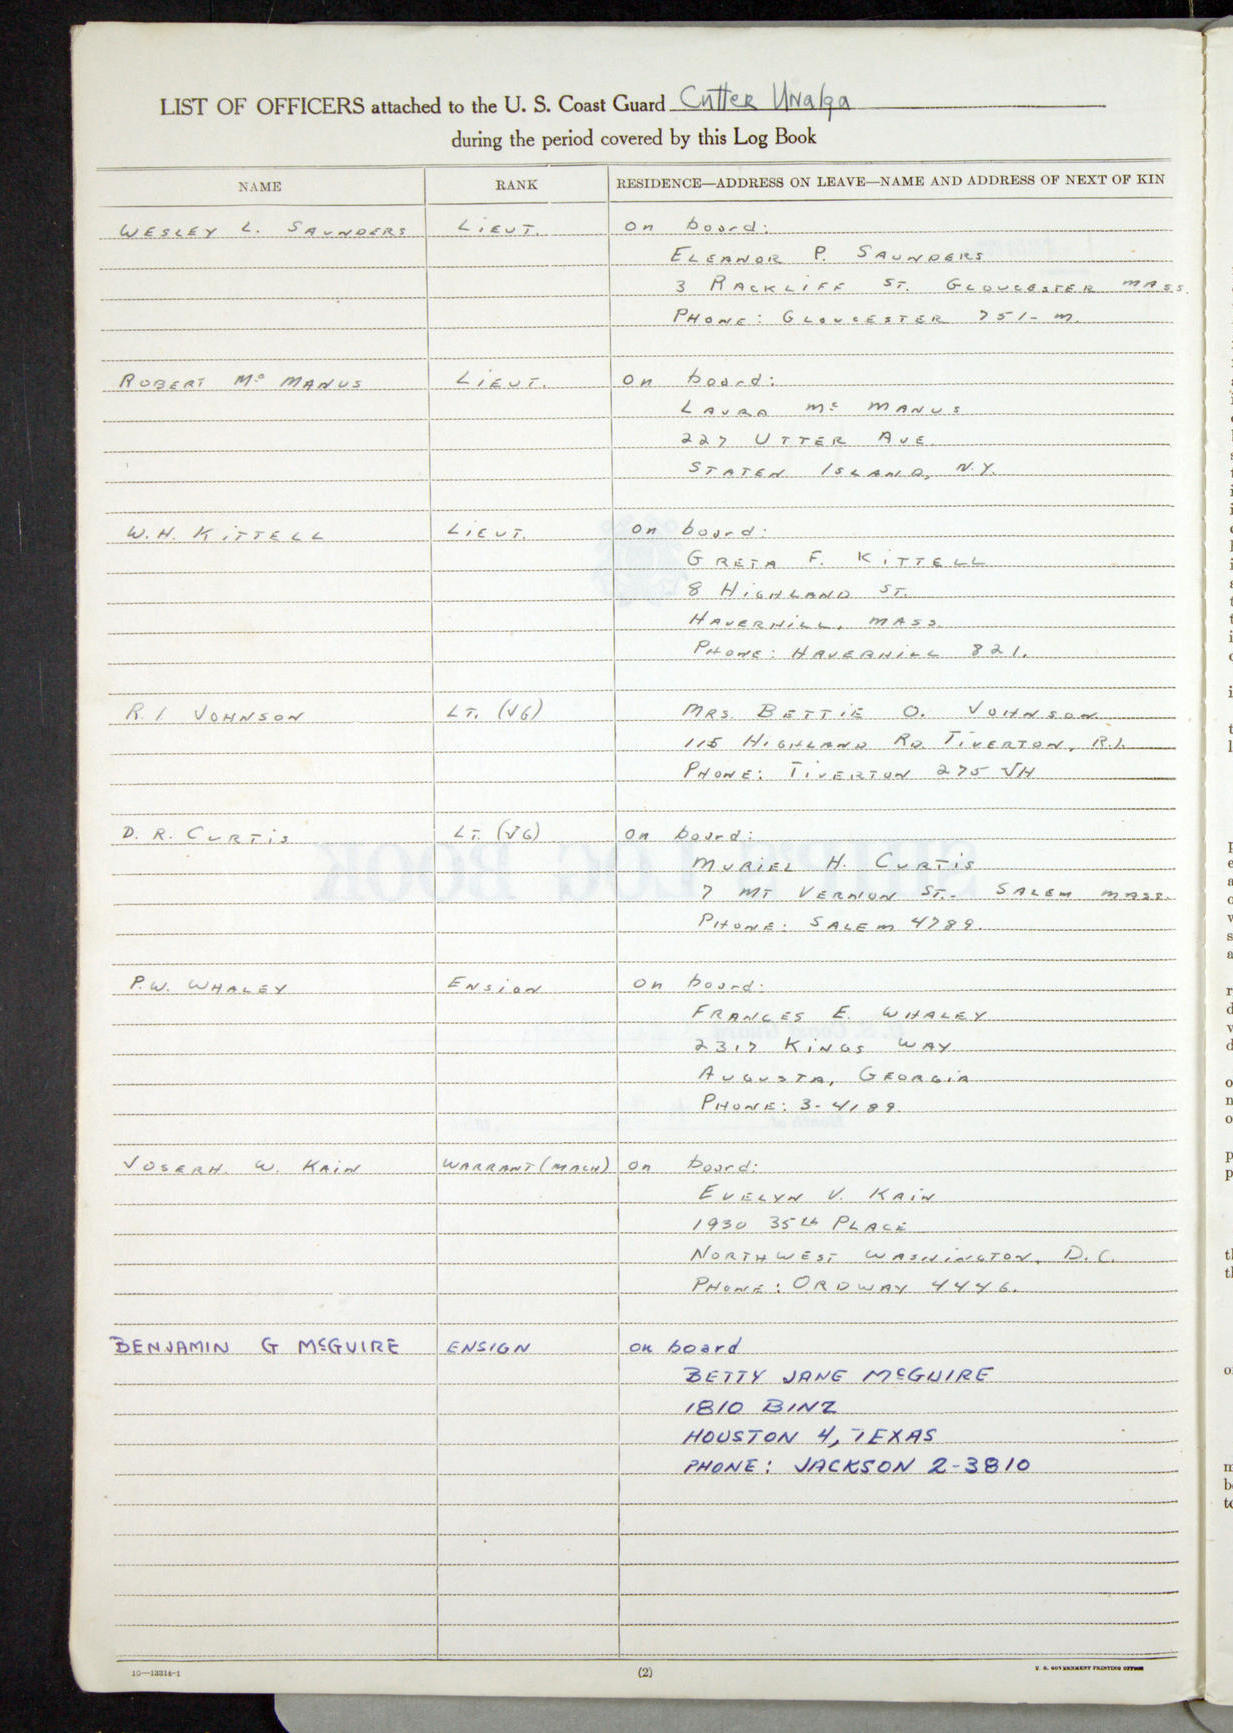 LIST OF OFFICERS attached to the U. S. Coast Guard Cutter Unalga
during the period covered by this Log Book
NAME RANK RESIDENCE—ADDRESS ON LEAVE—NAME AND ADDRESS OF NEXT OF KIN
WESLEY L. SAUNDERS LIEUT. on board:
ELEANOR P. SAUNDERS
3 RACKLIFF ST. GLOUCESTER MASS.
PHONE: GLOUCESTER 751-M.
ROBERT Mc MANUS LIEUT. on board:
LAURA Mc MANUS
227 UTTER AVE.
STATEN ISLAND, N.Y.
W.H. KITTELL LIEUT. on board:
GRETA F. KITTELL
8 HIGHLAND ST.
HAVERHILL, MASS.
PHONE: HAVERHILL 821.
R. I JOHNSON LT. (JG) MRS. BETTIE O. JOHNSON
115 HIGHLAND RD. TIVERTON, R.I.
PHONE: TIVERTON 275 JH
D. R. CURTIS LT. (JG) on board:
MURIEL H. CURTIS
7 MT VERNON ST.- SALEM MASS.
PHONE: SALEM 4789.
P.W. WHALEY ENSIGN on board:
FRANCES E. WHALEY
2317 KINGS WAY
AUGUSTA, GEORGIA
PHONE: 3-4189.
JOSEPH. W. KAIN WARRANT (MACH) on board:
EVELYN V. KAIN
1930 35th PLACE
NORTHWEST WASHINGTON, D.C.
PHONE: ORDWAY 4446.
BENJAMIN G McGUIRE ENSIGN on board
BETTY JANE McGUIRE
1810 BINZ
HOUSTON 4, TEXAS
PHONE: JACKSON 2-3810
10—13314-1 (2) U. S. GOVERNMENT PRINTING OFFICE